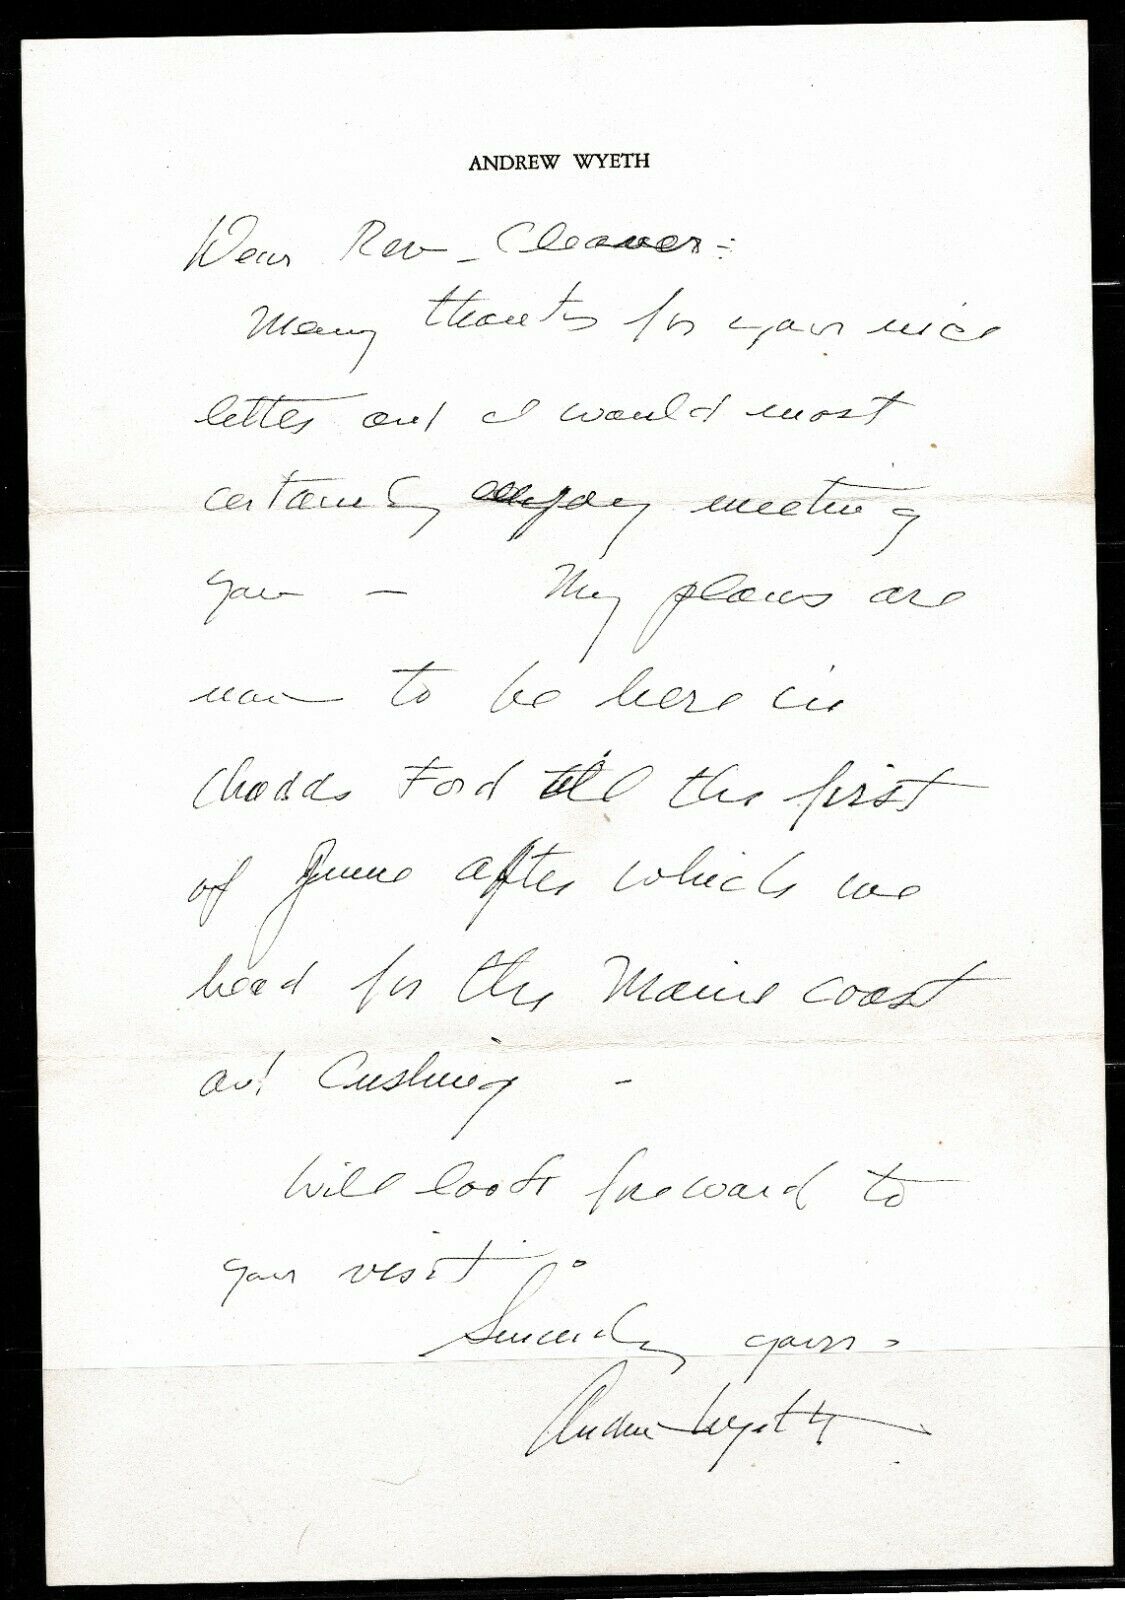 ANDREW WYETH
Dear Rev - Cleaver:
Many thanks for your nice
letter and I would most
certainly enjoy meeting
you - My plans are
now to be here in
Chadds Ford till the first
of June after which we
head for the Maine coast
and Cushing -
Will look forward to
your visit.
Sincerely yours -
Andrew Wyeth